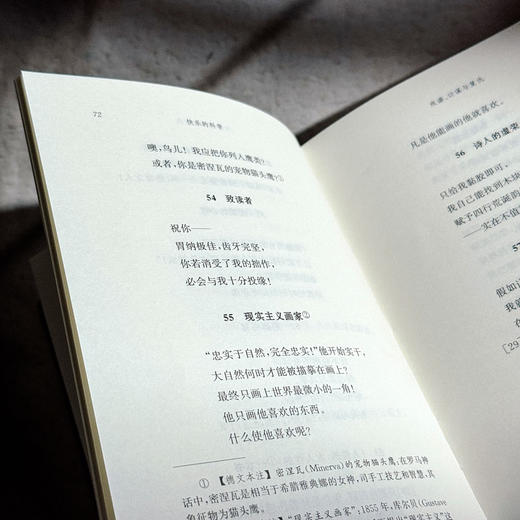 72
快乐的科学
噢，鸟儿！我应把你列入鹰类？
或者，你是密涅瓦的宠物猫头鹰？①
54 致读者
祝你——
胃纳极佳，齿牙完坚，
你若消受了我的拙作，
必会与我十分投缘！
55 现实主义画家②
“忠实于自然，完全忠实！”他开始实干，
大自然何时才能被描摹在画上？
最终只画上世界最微小的一角！
他只画他喜欢的东西。
什么使他喜欢呢？
① 【德文本注】密涅瓦（Minerva）的宠物猫头鹰：在罗马神
话中，密涅瓦是相当于希腊雅典娜的女神，司手工技艺和智慧，其
象征物为猫头鹰。
“现实主义画家”：1855年，库尔贝（Gustave
戏谑、计谋与复仇
凡是他能画的他就喜欢。
56 诗人的虚荣
只给我黏胶即可，
我自己能找到木块
赋予四行荒诞韵
——实在不值
57
假如
我
[29